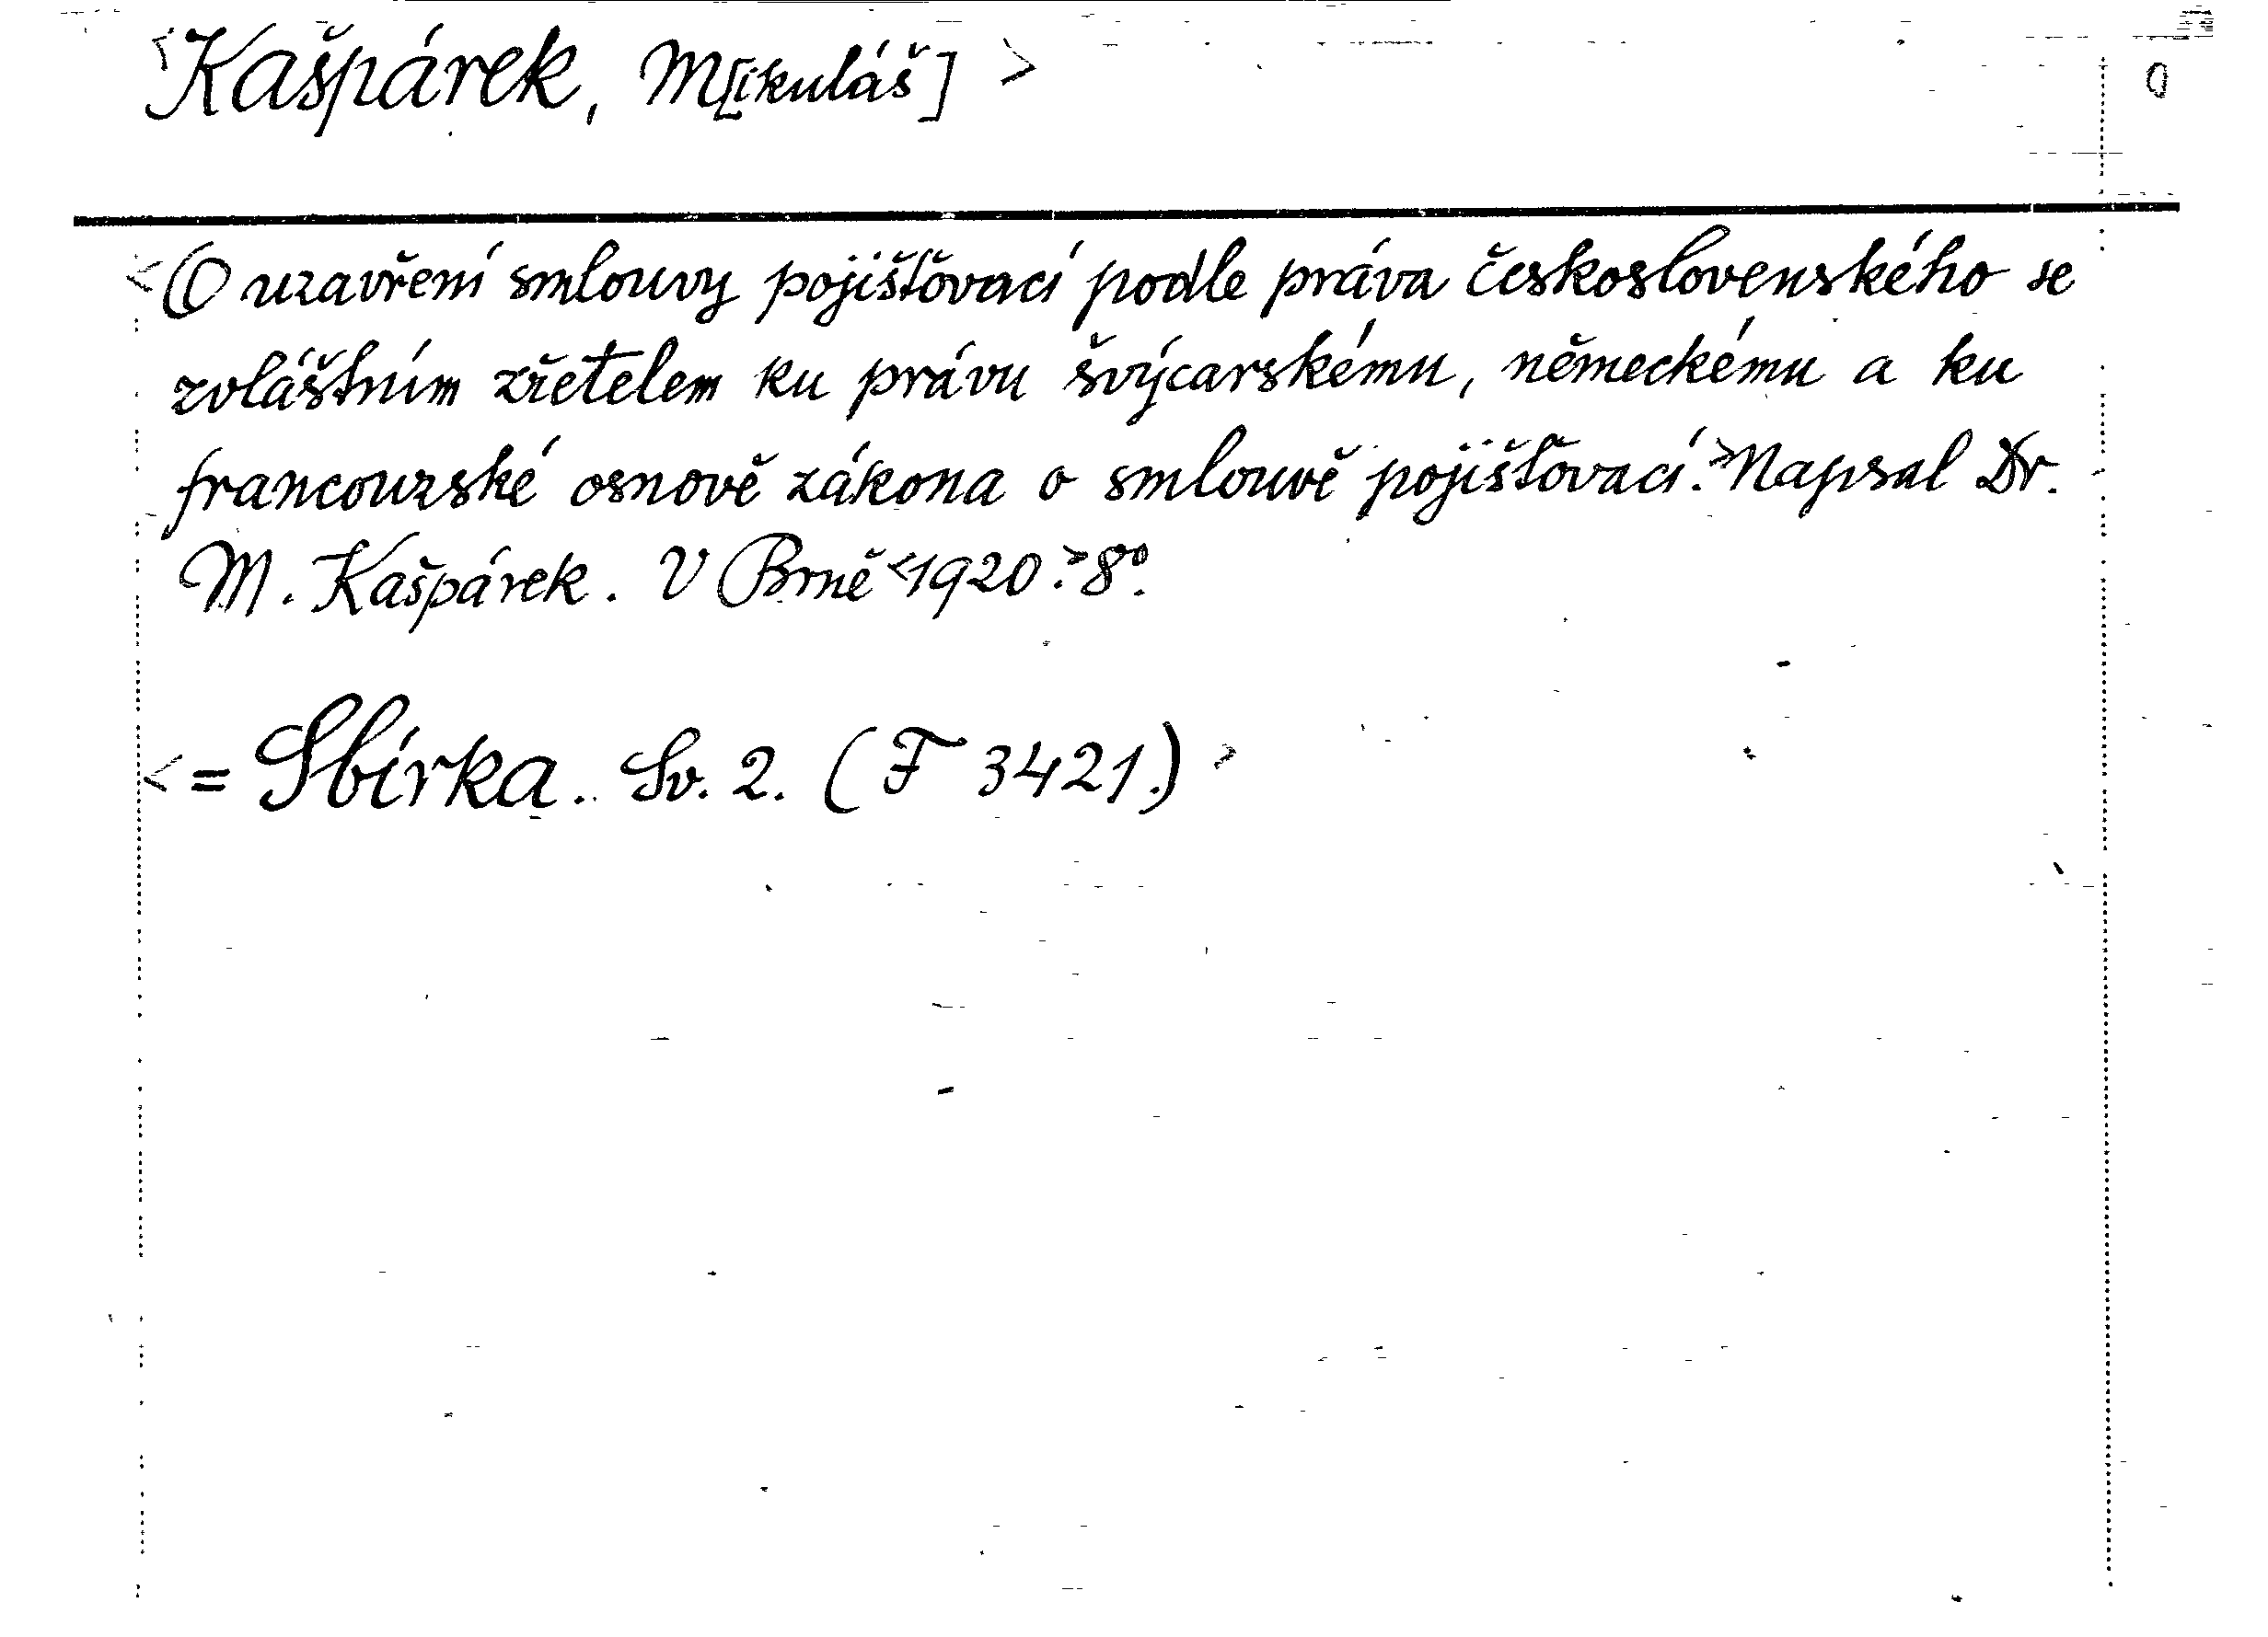 <Kašpárek, M[ikuláš]>
<O uzavření smlouvy pojišťovací podle práva československého se
zvláštním zřetelem ku právu švýcarskému, německému a ku
francouzské osnově zákona o smlouvě pojišťovací.> Napsal Dr.
M. Kašpárek. V Brně <1920.> 8°.
<= Sbírka. Sv. 2. (F 3421.)>